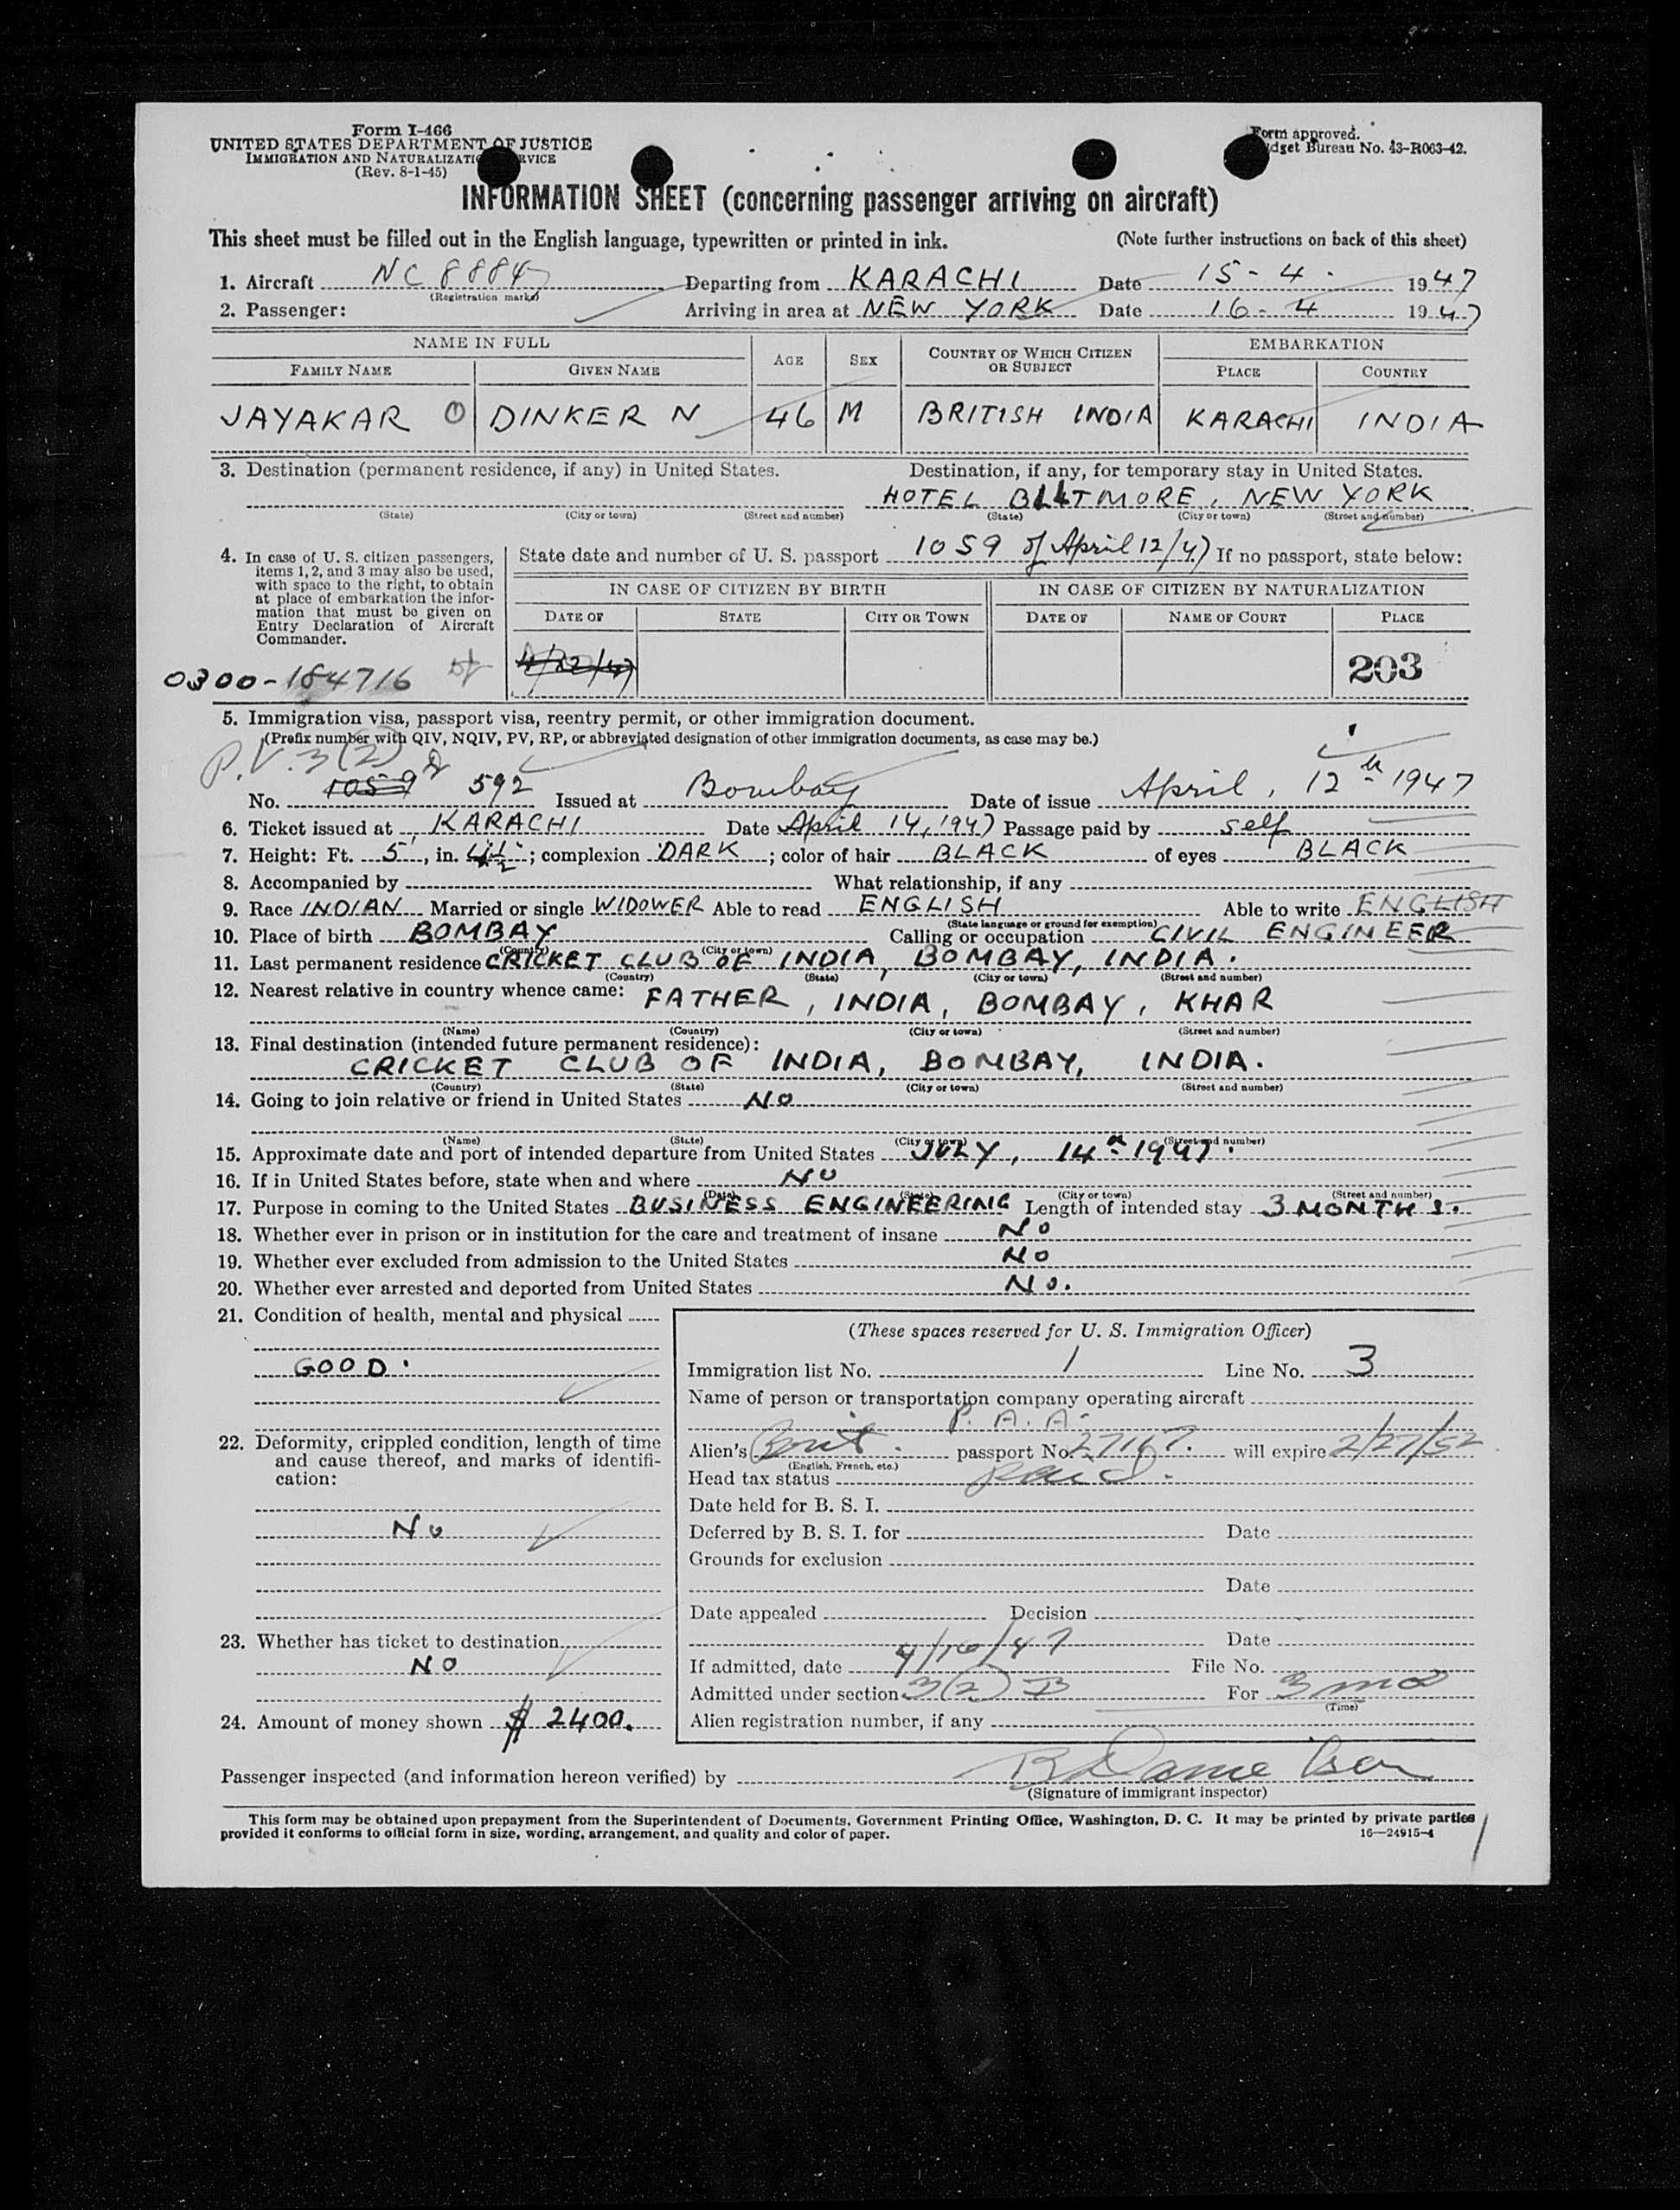 Form I-466
UNITED STATES DEPARTMENT OF JUSTICE
IMMIGRATION AND NATURALIZATION SERVICE
(Rev. 8-1-45)
Form approved.
Budget Bureau No. 43-R063-42.
INFORMATION SHEET (concerning passenger arriving on aircraft)
This sheet must be filled out in the English language, typewritten or printed in ink. (Note further instructions on back of this sheet)
1. Aircraft NC 88847 Departing from KARACHI Date 15-4. 1947
(Registration marks)
2. Passenger: Arriving in area at NEW YORK Date 16-4 1947
NAME IN FULL AGE SEX COUNTRY OF WHICH CITIZEN OR SUBJECT EMBARKATION
FAMILY NAME GIVEN NAME PLACE COUNTRY
JAYAKAR DINKER N 46 M BRITISH INDIA KARACHI INDIA
3. Destination (permanent residence, if any) in United States. Destination, if any, for temporary stay in United States.
HOTEL BILTMORE, NEW YORK
(State) (City or town) (Street and number) (State) (City or town) (Street and number)
4. In case of U. S. citizen passengers, items 1, 2, and 3 may also be used, with space to the right, to obtain at place of embarkation the information that must be given on Entry Declaration of Aircraft Commander.
State date and number of U. S. passport 1059 of April 12/47 If no passport, state below:
IN CASE OF CITIZEN BY BIRTH IN CASE OF CITIZEN BY NATURALIZATION
DATE OF STATE CITY OR TOWN DATE OF NAME OF COURT PLACE
0300-184716 203
5. Immigration visa, passport visa, reentry permit, or other immigration document.
(Prefix number with QIV, NQIV, PV, RP, or abbreviated designation of other immigration documents, as case may be.)
P.V. 3(2)
No. 1059 592 Issued at Bombay Date of issue April, 12th 1947
6. Ticket issued at KARACHI Date April 14, 1947 Passage paid by self
7. Height: Ft. 5', in. ; complexion DARK; color of hair BLACK of eyes BLACK
8. Accompanied by What relationship, if any
9. Race INDIAN Married or single WIDOWER Able to read ENGLISH Able to write ENGLISH
(State language or ground for exemption)
10. Place of birth BOMBAY Calling or occupation CIVIL ENGINEER
(Country) (City or town)
11. Last permanent residence CRICKET CLUB OF INDIA, BOMBAY, INDIA.
(Country) (State) (City or town) (Street and number)
12. Nearest relative in country whence came: FATHER, INDIA, BOMBAY, KHAR
(Name) (Country) (City or town) (Street and number)
13. Final destination (intended future permanent residence):
CRICKET CLUB OF INDIA, BOMBAY, INDIA.
(Country) (State) (City or town) (Street and number)
14. Going to join relative or friend in United States NO
(Name) (State) (City or town) (Street and number)
15. Approximate date and port of intended departure from United States JULY, 14th 1947.
16. If in United States before, state when and where NO
(Date) (State) (City or town) (Street and number)
17. Purpose in coming to the United States BUSINESS ENGINEERING Length of intended stay 3 MONTHS.
18. Whether ever in prison or in institution for the care and treatment of insane NO
19. Whether ever excluded from admission to the United States NO
20. Whether ever arrested and deported from United States NO.
21. Condition of health, mental and physical
GOOD.
22. Deformity, crippled condition, length of time and cause thereof, and marks of identification:
NO
23. Whether has ticket to destination
NO
24. Amount of money shown $ 2400.
(These spaces reserved for U. S. Immigration Officer)
Immigration list No. 1 Line No. 3
Name of person or transportation company operating aircraft
P. A. A.
Alien's Brit. passport No. 27167. will expire 2/27/52
(English, French, etc.)
Head tax status Paid.
Date held for B. S. I.
Deferred by B. S. I. for Date
Grounds for exclusion
Date
Date appealed Decision
Date
If admitted, date 4/16/47 File No.
Admitted under section 3(2) B For 3 mos
(Time)
Alien registration number, if any
Passenger inspected (and information hereon verified) by
(Signature of immigrant inspector)
This form may be obtained upon prepayment from the Superintendent of Documents, Government Printing Office, Washington, D. C. It may be printed by private parties
provided it conforms to official form in size, wording, arrangement, and quality and color of paper. 16—24915-4